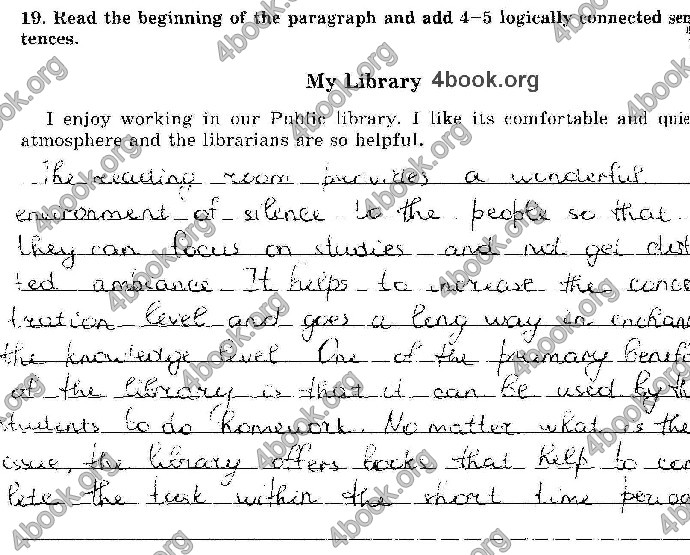 19. Read the beginning of the paragraph and add 4–5 logically connected sen
tences.
My Library 4book.org
I enjoy working in our Public library. I like its comfortable and quie
atmosphere and the librarians are so helpful.
The reading room provides a wonderful
environment of silence to the people so that
they can focus on studies and not get dist
ted ambiance. It helps to increase the conce
tration level and goes a long way in enchan
the knowledge level. One of the primary benefi
of the library is that it can be used by th
students to do homework. No matter what is the
issue, the library offers books that help to com
lete the task within the short time period